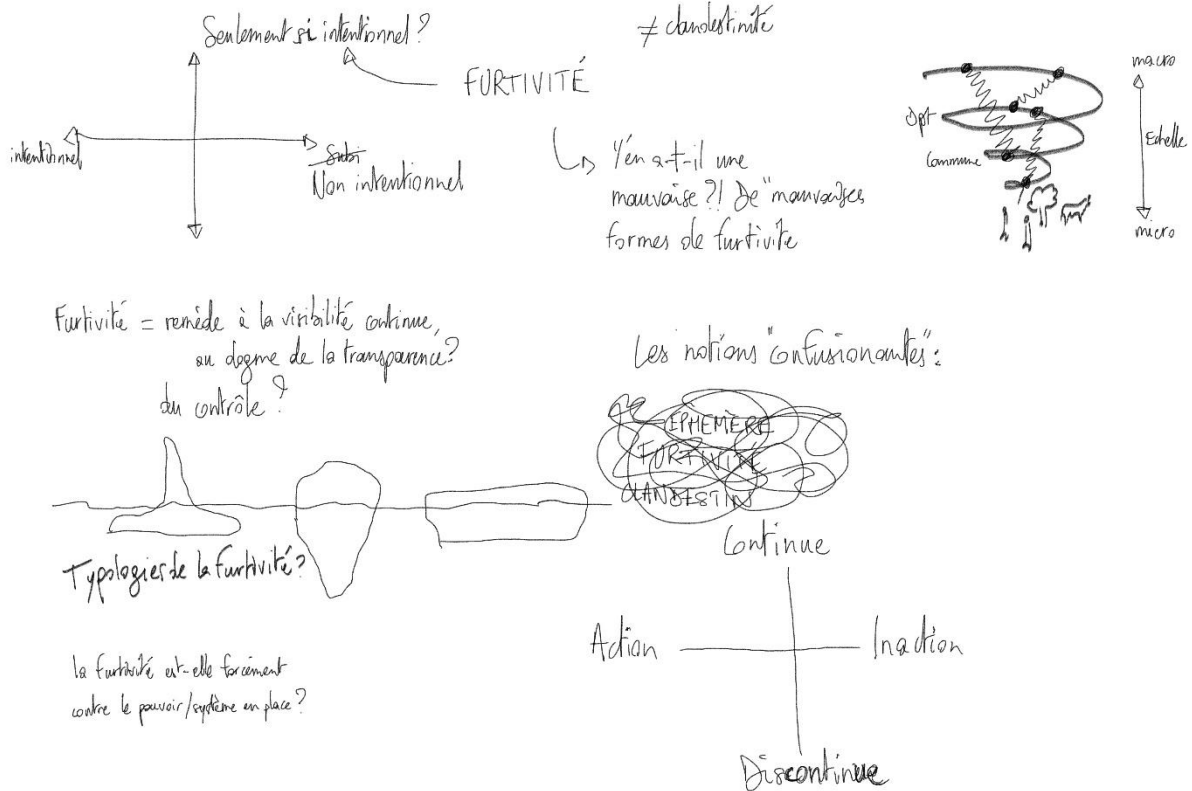 Seulement si intentionnel ?
≠ clandestinité
FURTIVITÉ
intentionnel
Subi
Non intentionnel
Y'en a-t-il une
mauvaise ?! De "mauvaises
formes de furtivité
macro
Dpt
Commune
Echelle
micro
Furtivité = remède à la visibilité continue,
au dogme de la transparence ?
du contrôle ?
Les notions "confusionantes" :
EPHEMÈRE
FURTIVITÉ
CLANDESTIN
Typologies de la furtivité ?
la furtivité est-elle forcément
contre le pouvoir/système en place ?
Continue
Action
Inaction
Discontinue